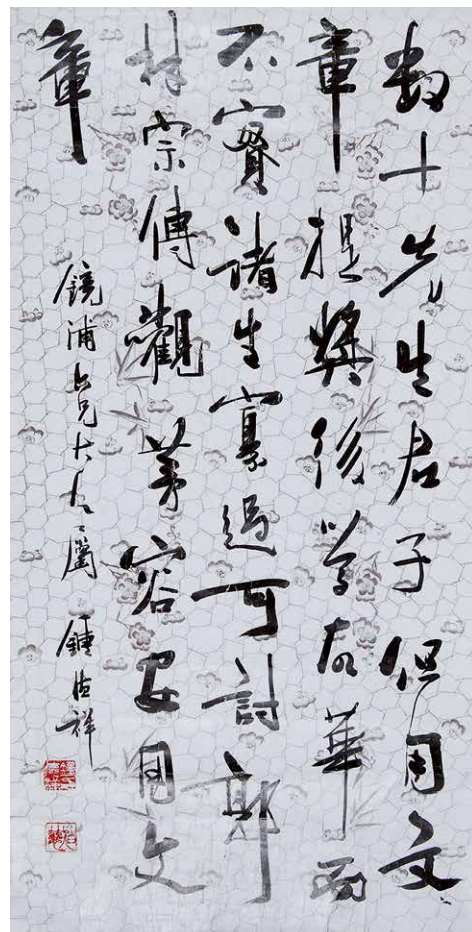 數十先生君子但用文
章提獎後學故華而
不實諸生寡過可討郭
林宗傳觀茅容安用文
章
鏡浦仁兄大人屬 鍾德祥